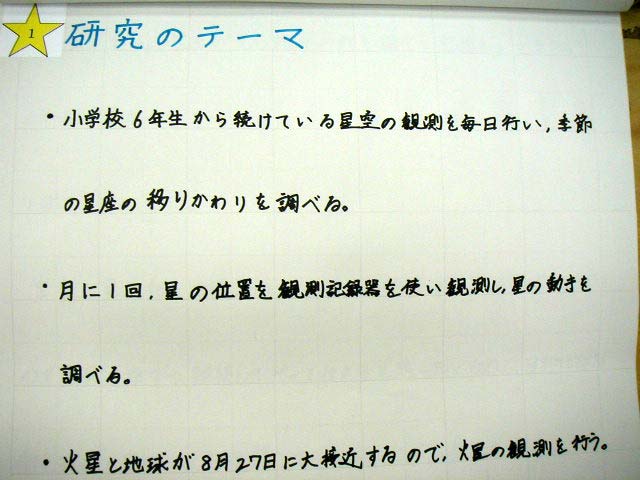 1 研究のテーマ
・小学校6年生から続けている星空の観測を毎日行い,季節
の星座の移りかわりを調べる。
・月に1回,星の位置を観測記録器を使い観測し,星の動きを
調べる。
・火星と地球が8月27日に大接近するので,火星の観測を行う。